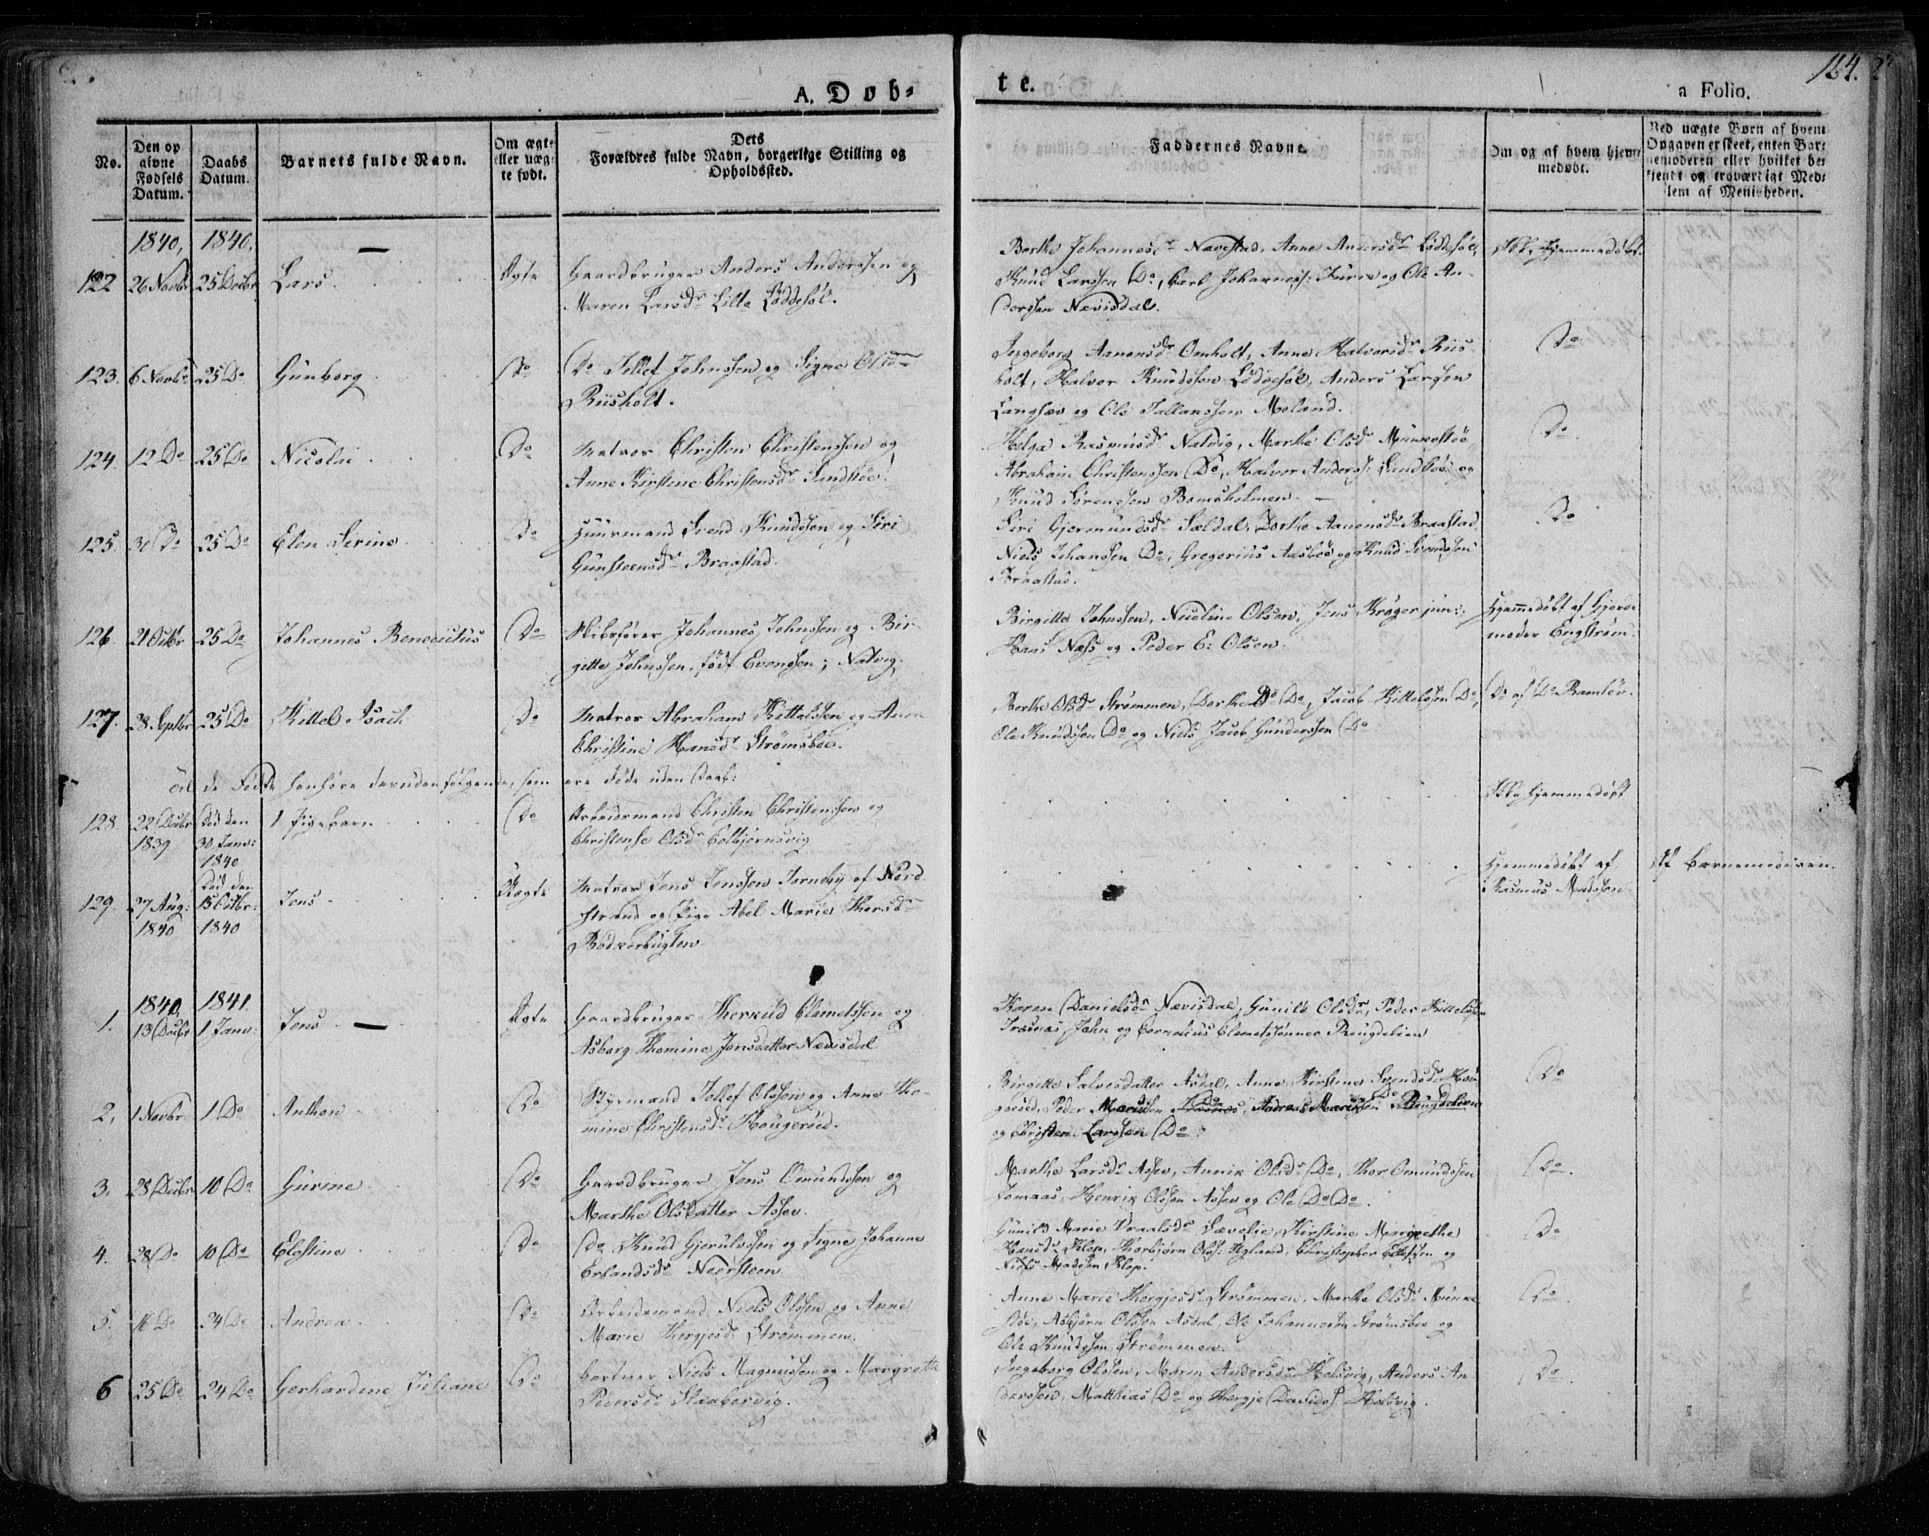 124.
A. Døb-
te.
a Folio.
No.
Den op
givne
Fødsels
Datum.
Daabs
Datum.
Barnets fulde Navn.
Om ægte
eller uæg-
te født.
Dets
Forældres fulde Navn, borgerlige Stilling og
Opholdssted.
Faddernes Navne.
Om og af hvem hjem-
medøbt.
Ved uægte Børn af hvem
Opgaven er skeet, enten Bar-
nemoderen eller hvilket be-
kjendt og troværdigt Med-
lem af Menigheden.
1840. 1840.
122 26 Novbr 25 Decbr Lars Ægte Gaardbruger Anders Anderssen og
Maren Larsdr Lille Løddesøl.
Berthe Johannesdr Navestad, Anne Andersdr Løddesøl,
Knud Larssen Do, Carl Johannes: Furre og Ole An-
derssen Nævisdal.
Ikke hjemmedøbt
123. 6 Novbr 25 Do Gunborg Do Do Tellef Johnssen og Signe Olsdr
Riisholt.
Ingeborg Aanonsdr Omholt, Anne Halvorsdr Riis-
holt, Halvor Knudssen Løddesøl, Anders Larssen
Langsæv og Ole Tallakssen Moland.
Do
124. 12 Do 25 Do Nicolai Do Matros Christen Christenssen og
Anne Kirstine Christensdr Sandstøe.
Helga Rasmusdr Natvig, Marthe Olsd Munkestøe
Abraham Christenssen Do, Halvor Anders: Sandstøe og
Knud Sørenssen Bomsholmen.
Do
125. 30 Do 25 Do Elen Serine Do Huusmand Svend Knudssen og Siri
Gunsteensdr Braastad.
Siri Gjermundsdr Sældal, Dorthe Aanonsdr Braastad,
Niels Johanssen Do, Gregorius Aasbøe og Knud Svendssen
Braastad.
Do
126. 21 Octbr 25 Do Johannes Benedictus Do Skibsfører Johannes Johnssen og Bir-
gitte Johnssen, født Evensen; Natvig.
Birgitte Johnssen, Nicoline Olsen, Jens Krøger jun:,
Hans Næss og Peder E: Olsen.
Hjemmedøbt af Gjorde-
moder Engstrøm.
127. 28 Septbr 25 Do Kittel Isach Do Matros Abraham Kittelssen og Anne
Christine Hansdr Strømsboe.
Berthe Olsdr Strømmen, Dorthe Do Do, Jacob Kittelssen Do,
Ole Knudssen Do og Niels Jacob Gunderssen Do
Do af Do Ramløv.
Til de Fødte henhøre desuden følgende, som ere døde uden Daab:
128. 22 Decbr
1839
Død den
30 Janv:
1840
1 Pigebarn Do Arbeidsmand Christen Christenssen og
Christense Olsdr Kolbjørnsvig
Ikke hjemmedøbt
129. 27 Aug:
1840
Død den
15 Octbr:
1840
Jens Uægte Matros Jens Jenssen Torneby af Nord-
strand og Pige Abel Marie Thorsdr
Bodverbugten
Hjemmedøbt af
Rasmus Madssen
Af Barnemoderen.
1840. 1841
1. 13 Decbr 1 Janv: Jens Ægte Gaardbruger Therkild Clemetssen og
Asborg Thomine Jensdatter Nævisdal
Karen Danielsdr Nævisdal, Gunild Olsdr, Peder Kittelssen
Træsnæs, John og Cornelius Clemetssønner Reugdelien
2. 1 Novbr 1 Do Anthon Do Styrmand Tellef Olssen og Anne Tho-
mine Christensdr Haugerød.
Birgitte Salvesdatter Asdal, Anne Kirstine Svendsdr Hau-
gerød, Peder Mariussen Do, Andreas Mariussen Do
og Christen Larssen Do.
Do
3. 28 Decbr 10 Do Gurine Do Gaardbruger Jens Omundssen og
Marthe Olsdatter Assev.
Marthe Larsdr Assev, Annik Olsdr Do, Thor Omundssen
Tomaas, Henrik Olssen Assev og Ole Do Do.
Do.
4. 28 Do 10 Do Elestine Do Do Knud Gjerulvssen og Signe Johanne
Erlandsdr Neersteen
Gunild Marie Roaldsdr Sævelie, Kirstine Margrethe
Hansdr Klop, Thorbjørn Ols: Uglund, Christopher Ellefssen og
Niels Madssen Klop.
Do
5. 16 Do 24 Do Andrea Do Arbeidsmand Niels Olssen og Anne
Marie Thergjesdr Strømmen.
Anne Marie Thergjesdr Strømmen, Marthe Olsdr Munke-
støe, Asbjørn Olssen Asdal, Ole Johannessen Strømsboe og
Ole Knudssen Strømmen.
Do
6 25 Do 24 Do Gerhardine Juliane Do Gartner Niels Magnussen og Margrethe
Pedersdr Skaabervig.
Ingeborg Olssen, Maren Andersdr Helsvig, Anders An-
derssen, Matthias Do og Thergje Davids: Helsvig.
Do.